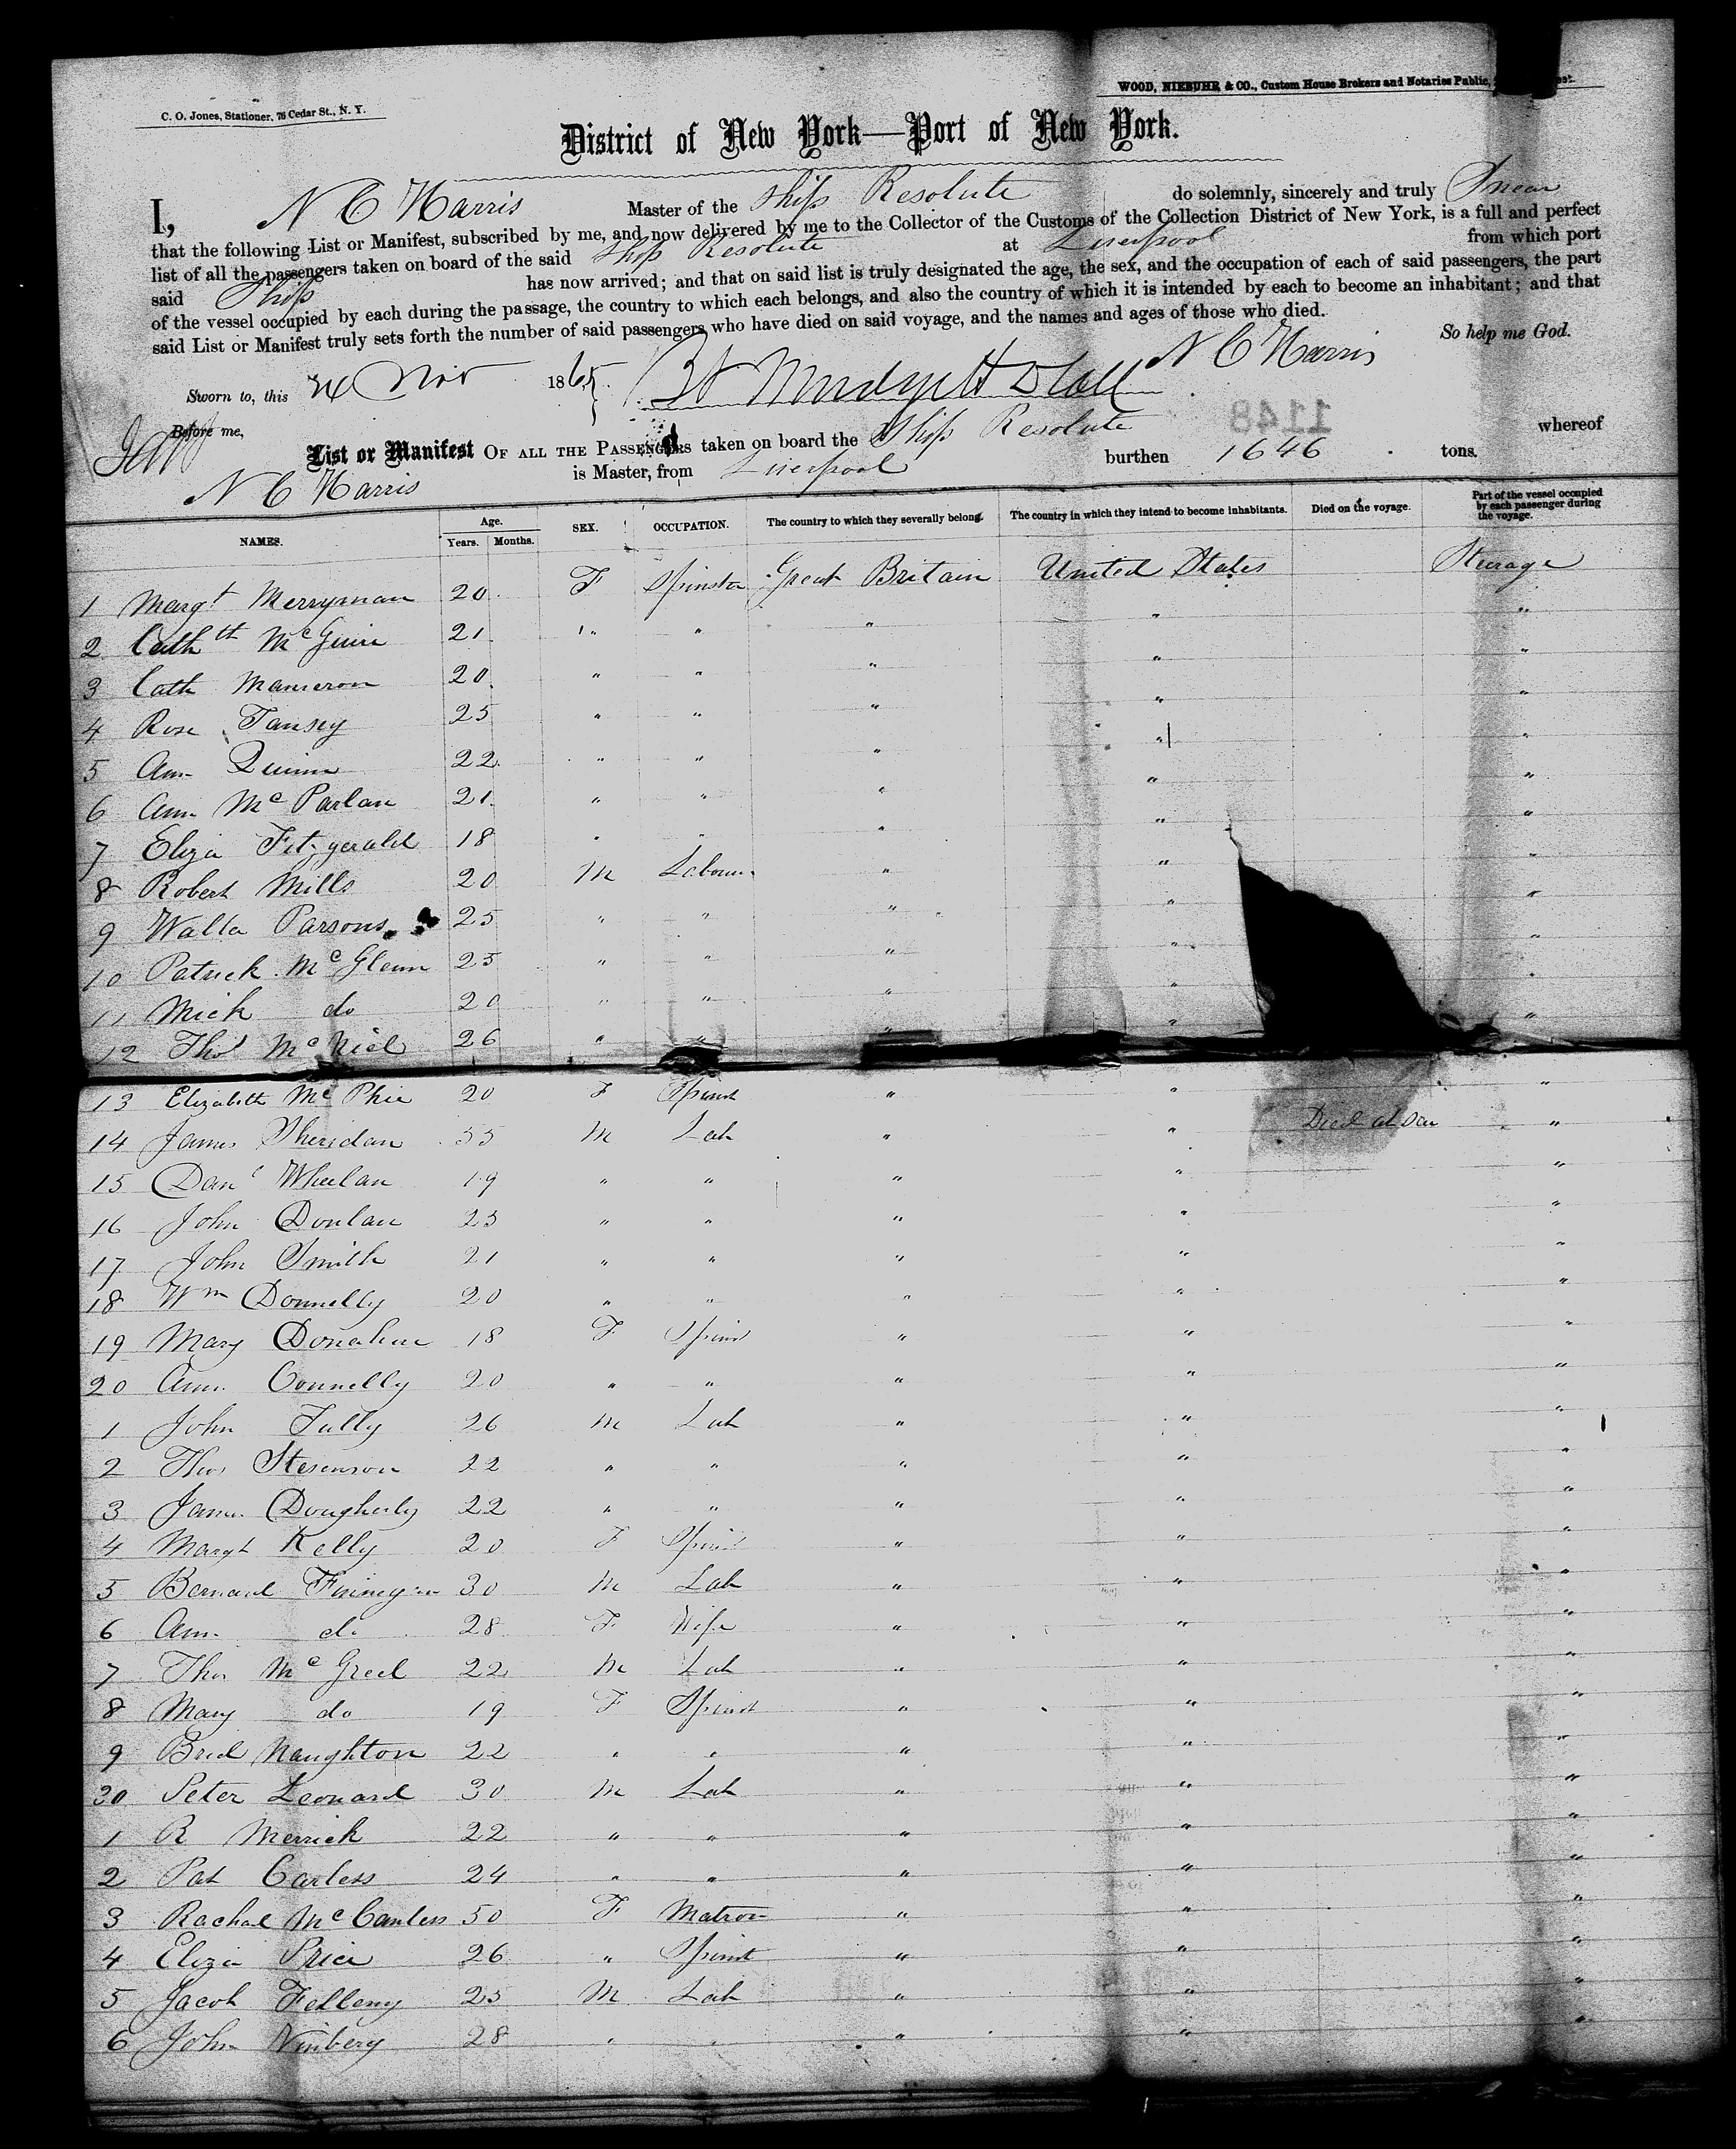 C. O. Jones, Stationer, 76 Cedar St., N. Y.
WOOD, NIEBUHR & CO., Custom House Brokers and Notaries Public,
District of New York—Port of New York.
I, N C Harris Master of the Ship Resolute do solemnly, sincerely and truly Swear
that the following List or Manifest, subscribed by me, and now delivered by me to the Collector of the Customs of the Collection District of New York, is a full and perfect
list of all the passengers taken on board of the said Ship Resolute at Liverpool from which port
said Ship has now arrived; and that on said list is truly designated the age, the sex, and the occupation of each of said passengers, the part
of the vessel occupied by each during the passage, the country to which each belongs, and also the country of which it is intended by each to become an inhabitant; and that
said List or Manifest truly sets forth the number of said passengers who have died on said voyage, and the names and ages of those who died.
So help me God.
N C Harris
Sworn to, this 24 Nov 1865
Before me,
1148
List or Manifest OF ALL THE PASSENGERS taken on board the Ship Resolute whereof
N C Harris is Master, from Liverpool burthen 1646 tons.
NAMES. Age. Years. Months. SEX. OCCUPATION. The country to which they severally belong. The country in which they intend to become inhabitants. Died on the voyage. Part of the vessel occupied by each passenger during the voyage.
1 Margt Merryman 20 F Spinster Great Britain United States Steerage
2 Cathth McGuire 21 " " " " "
3 Cath 20 " " " " "
4 Rose Tansey 25 " " " " "
5 Ann Quinn 22 " " " " "
6 Ann McParlan 21 " " " " "
7 Eliza Fitzgerald 18 " " " " "
8 Robert Mills 20 M Labour " " "
9 Walter Parsons 25 " " " " "
10 Patrick McGlenn 25 " " " " "
11 Mick do 20 " " " " "
12 Thos McNiel 26 " " " " "
13 Elizabeth McPhie 20 F Spinst " " "
14 James Sheridan 55 M Lab " " Died at Sea "
15 Danl Whelan 19 " " " " "
16 John Donlan 25 " " " " "
17 John Smith 21 " " " " "
18 Wm Donnelly 20 " " " " "
19 Mary Donahue 18 F Spinst " " "
20 Ann Connelly 20 " " " " "
1 John Tully 26 M Lab " " "
2 Thos Stevenson 22 " " " " "
3 James Dougherty 22 " " " " "
4 Margt Kelly 20 F Spinst " " "
5 Bernard Finnegan 30 M Lab " " "
6 Ann do 28 F Wife " " "
7 Thos McGreel 22 M Lab " " "
8 Mary do 19 F Spinst " " "
9 Brid Naughton 22 " " " " "
30 Peter Leonard 30 M Lab " " "
1 R Merrick 22 " " " " "
2 Pat Carless 24 " " " " "
3 Rachal McCanless 50 F Matron " " "
4 Eliza Price 26 " Spinst " " "
5 Jacob Felleny 25 M Lab " " "
6 John Ninbery 28 " " " " "